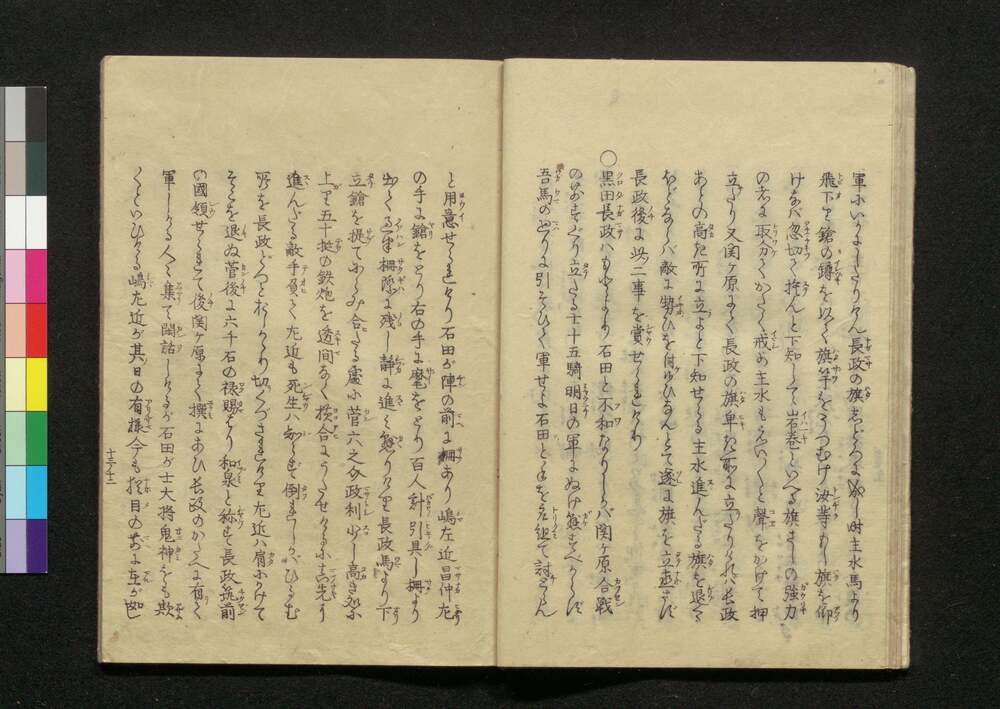 軍にいかゝしたりけん長政の旗しどろに成し時主水馬より
飛下り鎗の鐏を以て旗竿をうつむけ汝等もし旗を仰
けなバ忽切て捨んと下知して岩巻といへる旗さしの強力
の者に取分てかたく戒め主水もえい〳〵と聲をかけて押
立たり又関ヶ原にて長政の旗卑き所に立たりけれバ長政
あとの高き所に立よと下知せらる主水進んたる旗を退く
るならバ敵に勢ひを付るなんとて遂に旗を立直さず
長政後に此二事を賞せられけり
○黒田長政ハもとより石田と不和なりしかバ関ヶ原合戦
のおすぐり立たる士十五騎明日の軍にぬけ懸すべからず
吾馬のめぐりに引そひて軍せよ石田と手を左組て討とらん
と用意せられけり石田が陣の前に柵あり嶋左近昌仲左
の手に鎗をとり右の手に麾をとり百人計引具し柵より
出て過半柵際に残し静に進ミ懸りけるに長政馬より下
立鎗を提てわたり合たる處に菅六之介政利少し高き処に
上り五十挺の鉄炮を透間なく横合にうたせけるに真先に
進んたる敵手負て左近も死生ハ知らず倒れしかバひるむ
所を長政どつとおしかゝり切くづされけり左近ハ肩にかけて
そこを退ぬ菅後に六千石の禄賜はり和泉と称す長政筑前
の國領せられて後関ヶ原にて撰にあひ長政のかたへに有て
軍しける人々集て閑話しけるが石田が士大将鬼神をも欺
くといひける嶋左近が其日の有様今も猶目の前に在が如
十三ノ十二